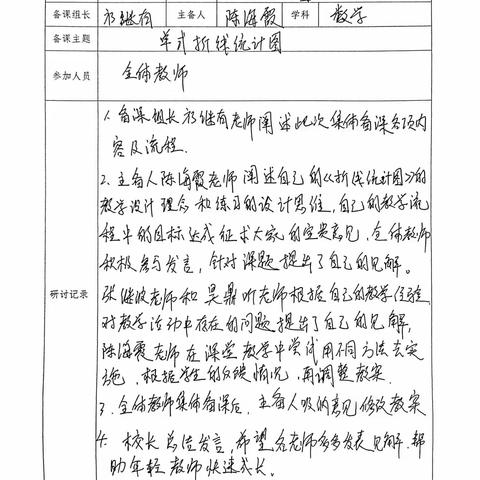 备课组长 祁继有 主备人 陈海霞 学科 数学
备课主题 单式折线统计图
参加人员 全体教师
研讨记录
1、备课组长祁继有老师阐述此次集体备课各项内
容及流程.
2、主备人陈海霞老师阐述自己的《折线统计图》的
教学设计理念和练习的设计思维,自己的教学流
程中的目标达成征求大家的宝贵意见,全体教师
积极参与发言,针对课题提出了自己的见解。
张继波老师和吴鼎听老师根据自己的教学经验
对教学活动中存在的问题提出了自己的见解,
陈海霞老师在课堂教学中尝试用不同方法去实
施,根据学生的反映情况,再调整教案.
3、全体教师集体备课后,主备人吸纳意见修改教案
4、校长总结发言,希望各老师多多发表见解,帮
助年轻教师快速成长。